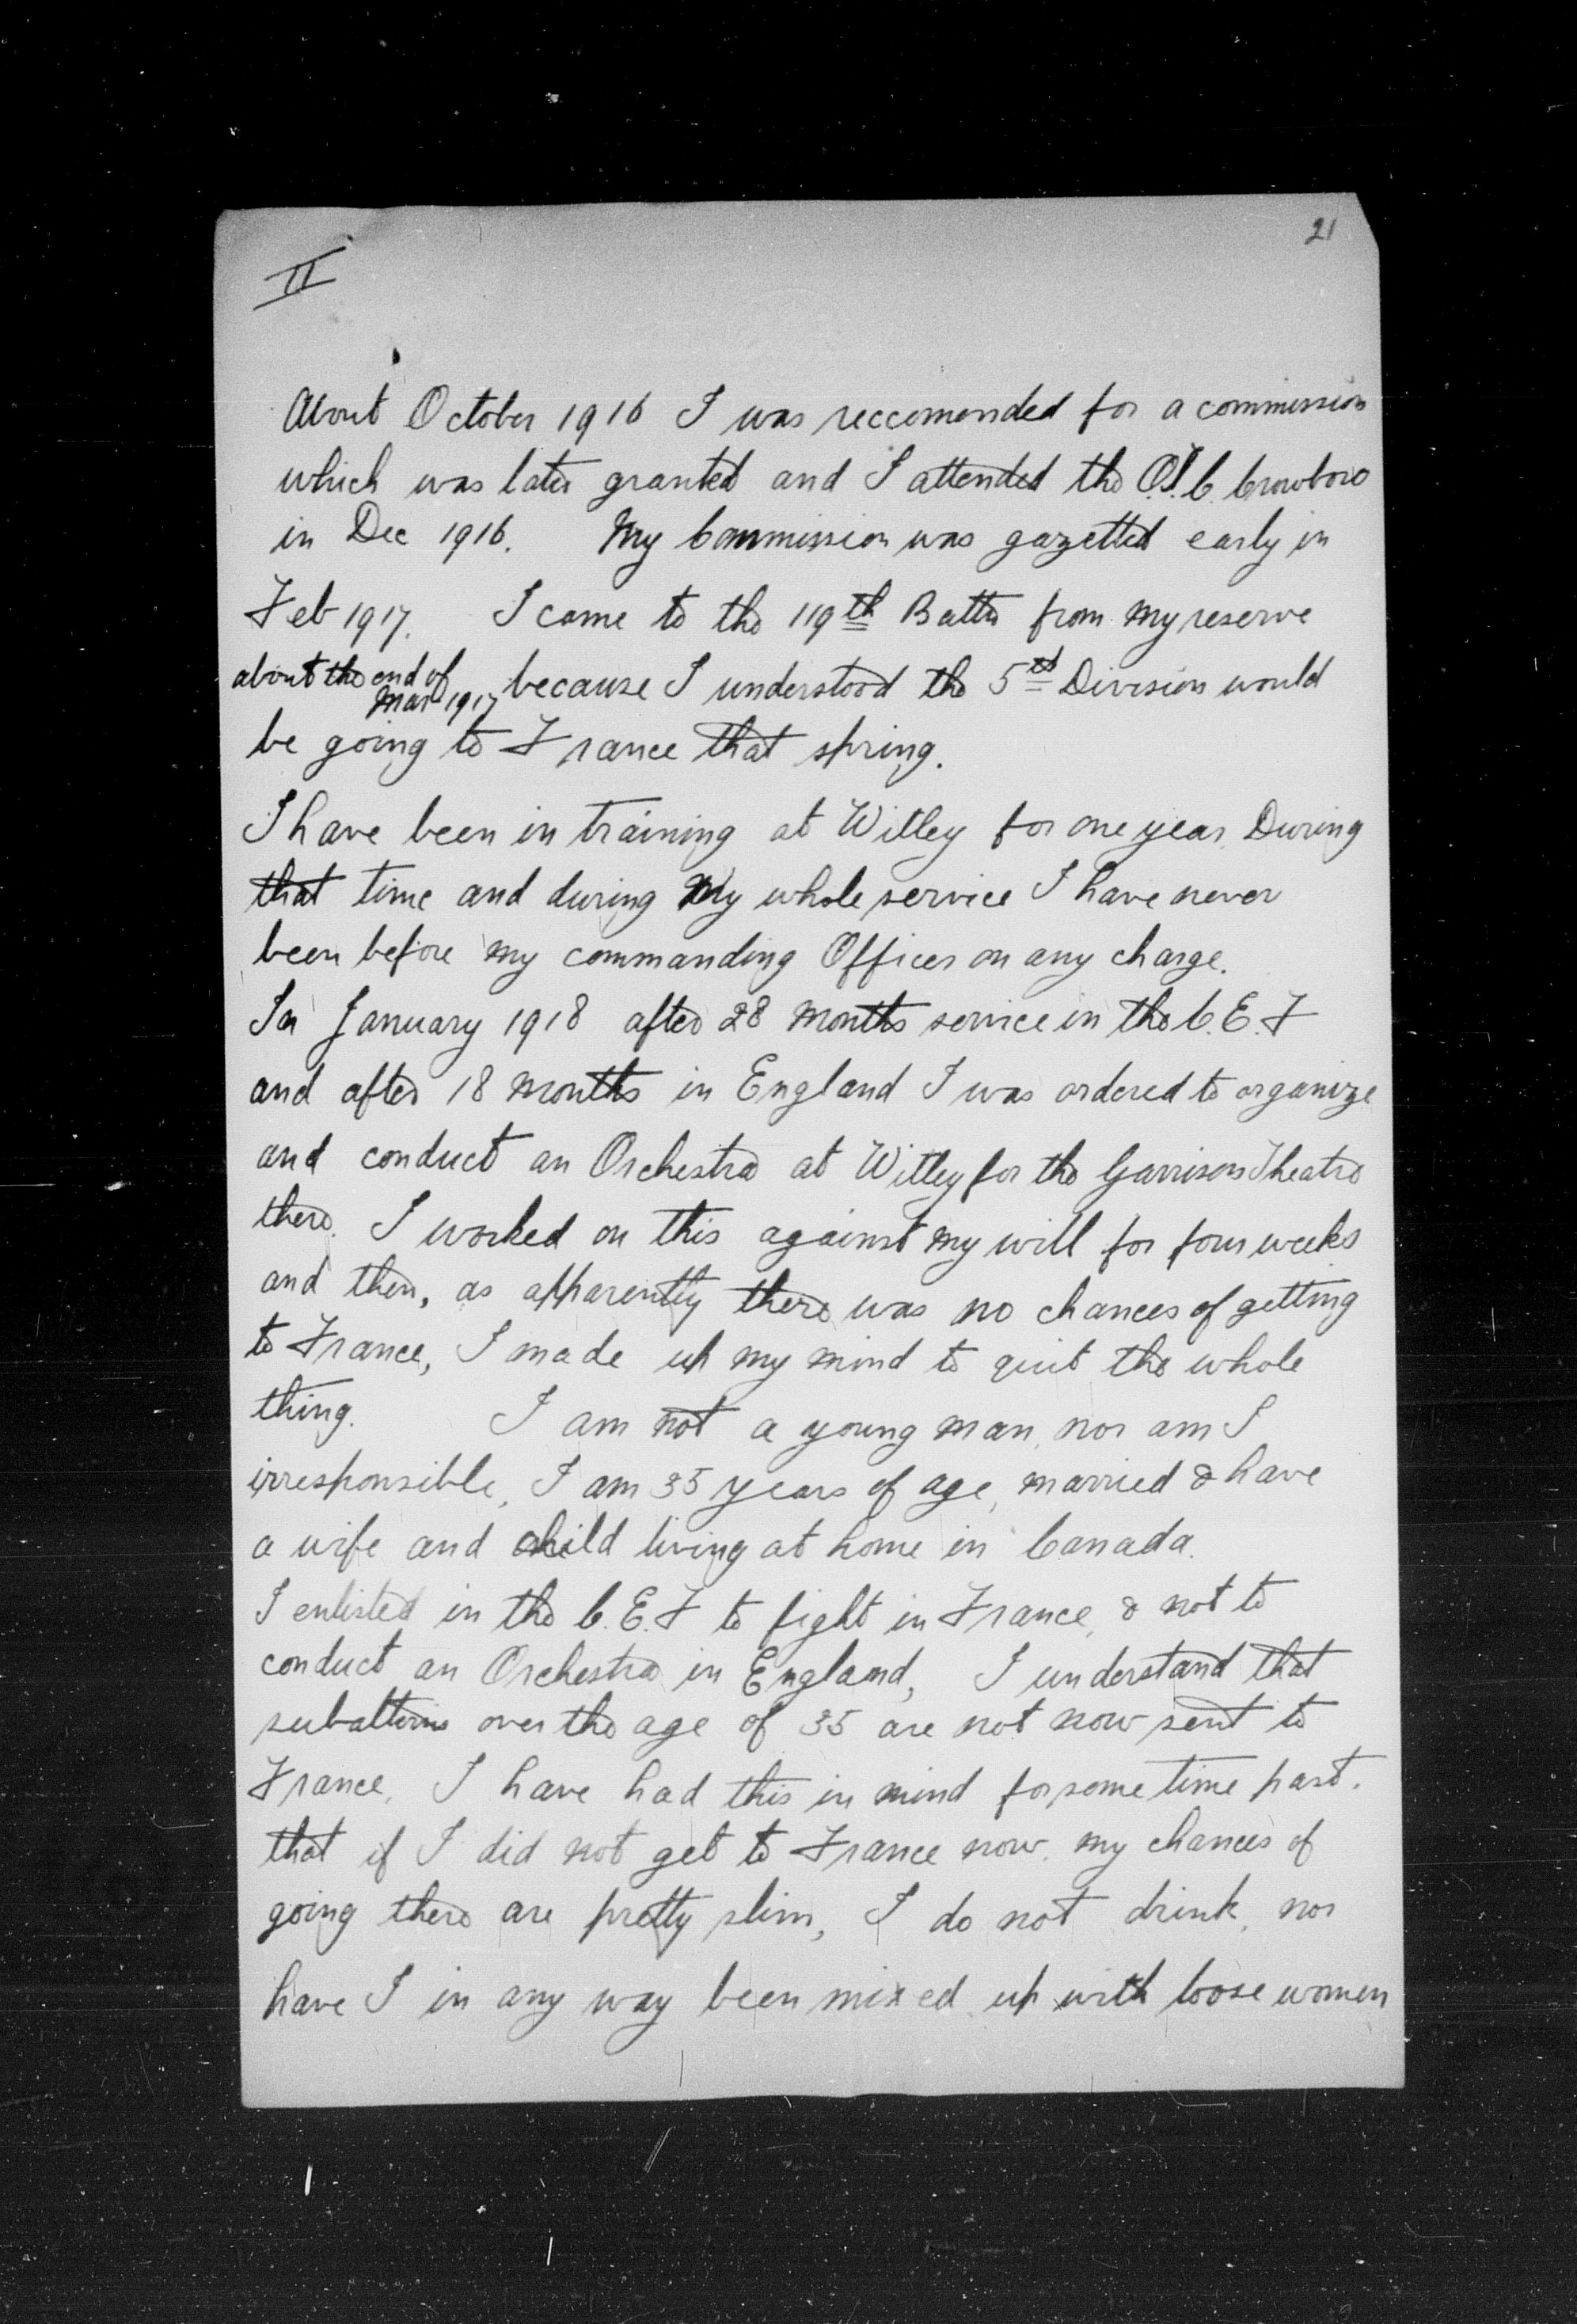 21
II
About October 1916 I was reccomended for a commission
which was later granted and I attended the O.T.C. Crowboro
in Dec 1916. My Commission was gazetted early in
Feb 1917. I came to the 119th Battn from my reserve
about the end of
Mar 1917 because I understood the 5th Division would
be going to France that spring.
I have been in training at Witley for one year. During
that time and during My whole service I have never
been before my commanding Officer on any charge.
In January 1918 after 28 months service in the C.E.F
and after 18 months in England I was ordered to organize
and conduct an Orchestra at Witley for the Garrison Theatre
there. I worked on this against my will for four weeks
and then, as apparently there was no chances of getting
to France, I made up my mind to quit the whole
thing. I am not a young man, nor am I
irresponsible, I am 35 years of age, married & have
a wife and child living at home in Canada.
I enlisted in the C.E.F to fight in France, & not to
conduct an Orchestra in England, I understand that
subalterns over the age of 35 are not now sent to
France, I have had this in mind for some time past.
that if I did not get to France now, my chances of
going there are pretty slim, I do not drink, nor
have I in any way been mixed up with loose women